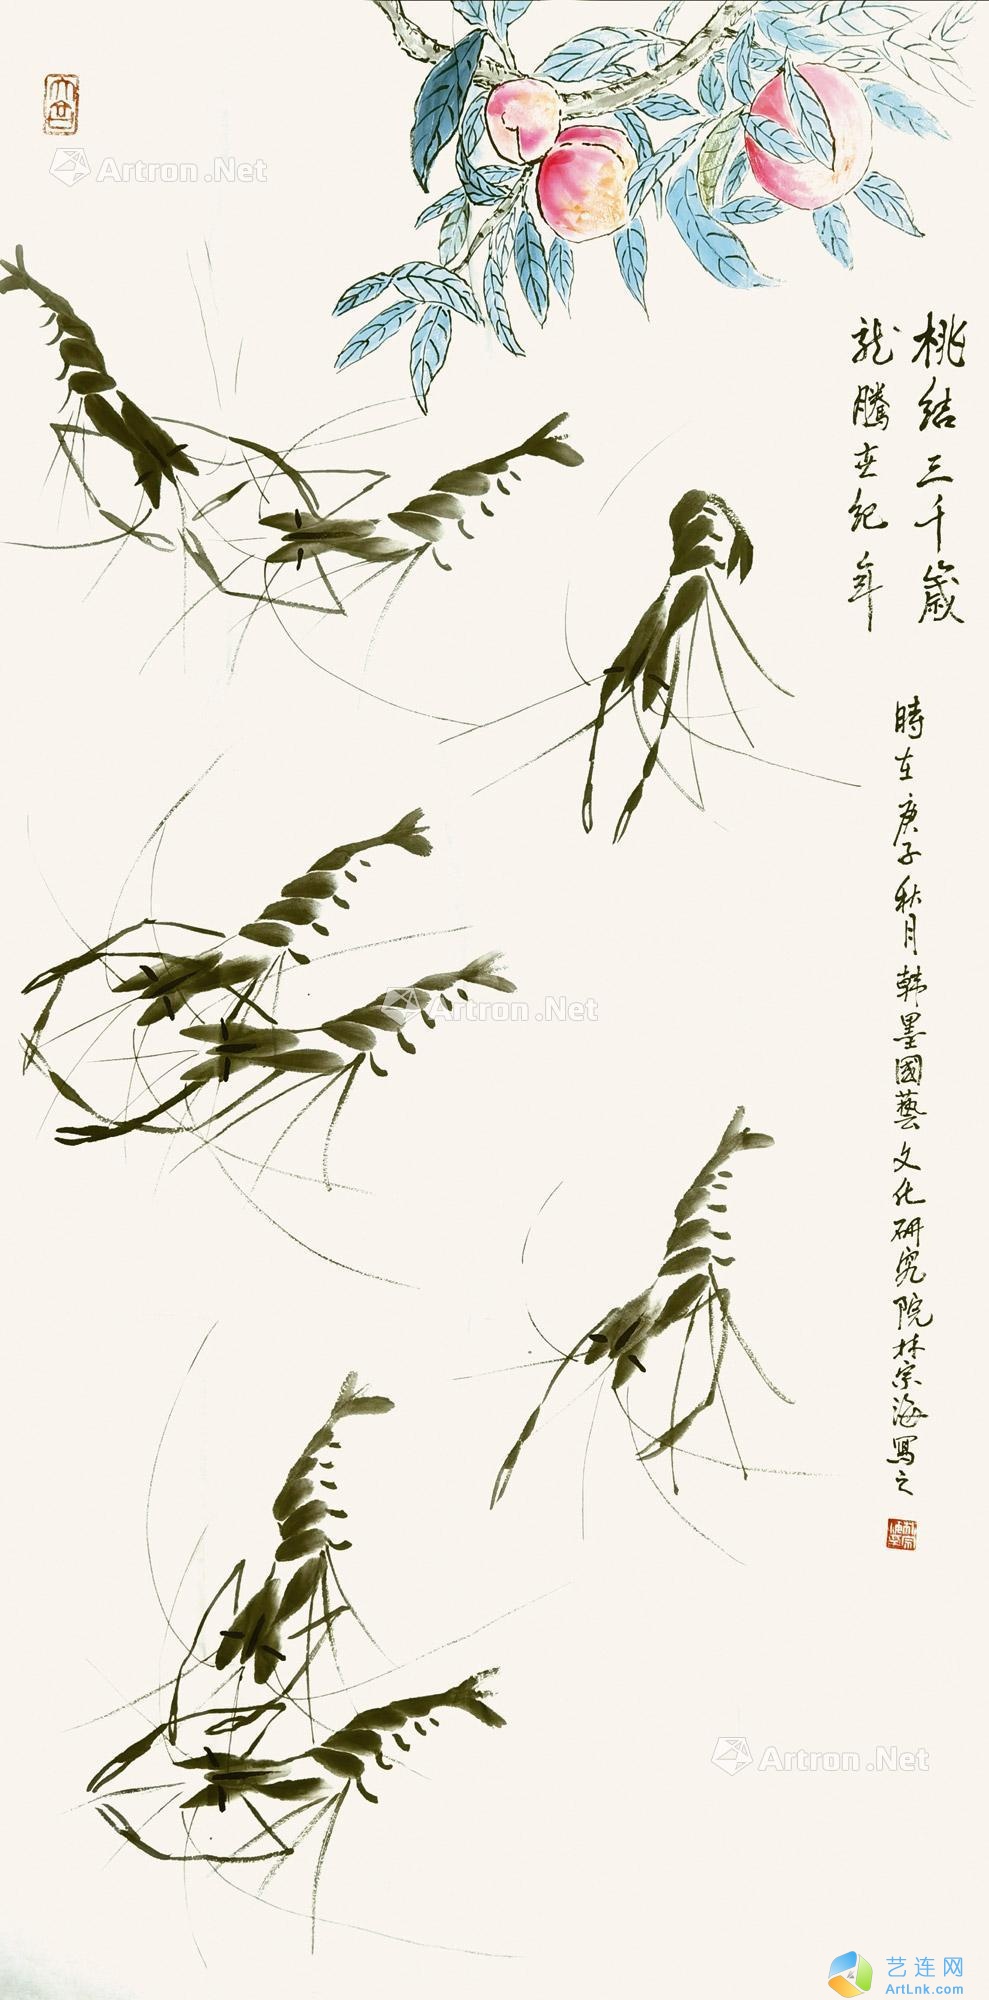 桃结三千歲
龍騰世纪年
時在庚子秋月韩墨國藝文化研究院林宗海寫之
Artron.Net
Artron.Net
Artron.Net
艺连网
ArtLnk.com